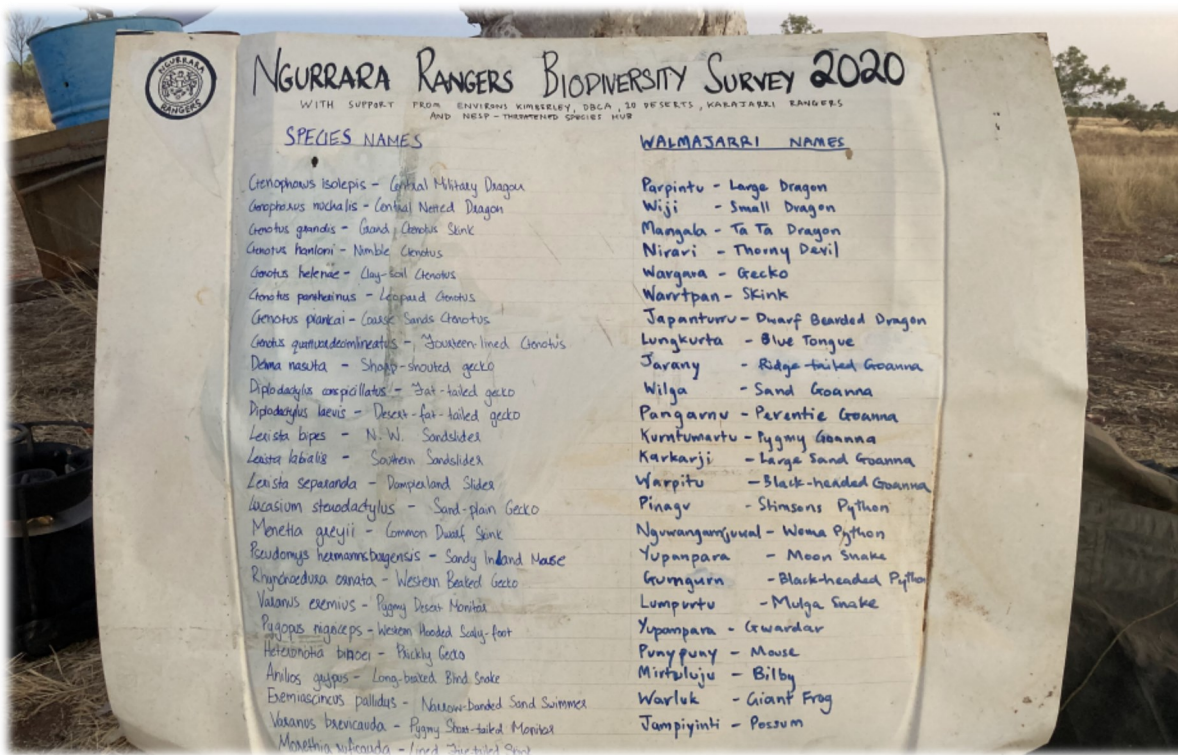 NGURRARA RANGERS
NGURRARA RANGERS BIODIVERSITY SURVEY 2020
WITH SUPPORT FROM ENVIRONS KIMBERLEY, DBCA, 10 DESERTS, KARAJARRI RANGERS
AND NESP - THREATENED SPECIES HUB
SPECIES NAMES
Ctenophorus isolepis - Central Military Dragon
Ctenophorus nuchalis - Central Netted Dragon
Ctenotus grandis - Grand Ctenotus Skink
Ctenotus hanloni - Nimble Ctenotus
Ctenotus helenae - Clay-soil Ctenotus
Ctenotus pantherinus - Leopard Ctenotus
Ctenotus piankai - Coarse Sands Ctenotus
Ctenotus quattuordecimlineatus - Fourteen-lined Ctenotus
Delma nasuta - Sharp-snouted gecko
Diplodactylus conspicillatus - Fat-tailed gecko
Diplodactylus laevis - Desert-fat-tailed gecko
Lerista bipes - N.W. Sandslider
Lerista labialis - Southern Sandslider
Lerista separanda - Dampierland Slider
Lucasium stenodactylus - Sand-plain Gecko
Menetia greyii - Common Dwarf Skink
Pseudomys hermannsburgensis - Sandy Inland Mouse
Rhynchoedura ornata - Western Beaked Gecko
Varanus eremius - Pygmy Desert Monitor
Pygopus nigriceps - Western Hooded Scaly-foot
Heteronotia binoei - Prickly Gecko
Anilios grypus - Long-beaked Blind Snake
Eremiascincus pallidus - Narrow-banded Sand Swimmer
Varanus brevicauda - Pygmy Short-tailed Monitor
Morethia ruficauda - Lined
WALMAJARRI NAMES
Parpintu - Large Dragon
Wiji - Small Dragon
Mangala - Ta Ta Dragon
Nirari - Thorny Devil
Wargara - Gecko
Warrtpan - Skink
Japanturru - Dwarf Bearded Dragon
Lungkurta - Blue Tongue
Jarany - Ridge-tailed Goanna
Wilga - Sand Goanna
Pangarnu - Perentie Goanna
Kurntumartu - Pygmy Goanna
Karkarji - Large Sand Goanna
Warpitu - Black-headed Goanna
Pinagu - Stimsons Python
Nguwangarrjuwal - Woma Python
Yupanpara - Moon Snake
Gurngurn - Black-headed Python
Lumpurtu - Mulga Snake
Yupanpara - Gwardar
Punypuny - Mouse
Mirtuluju - Bilby
Warluk - Giant Frog
Jampiyinti - Possum